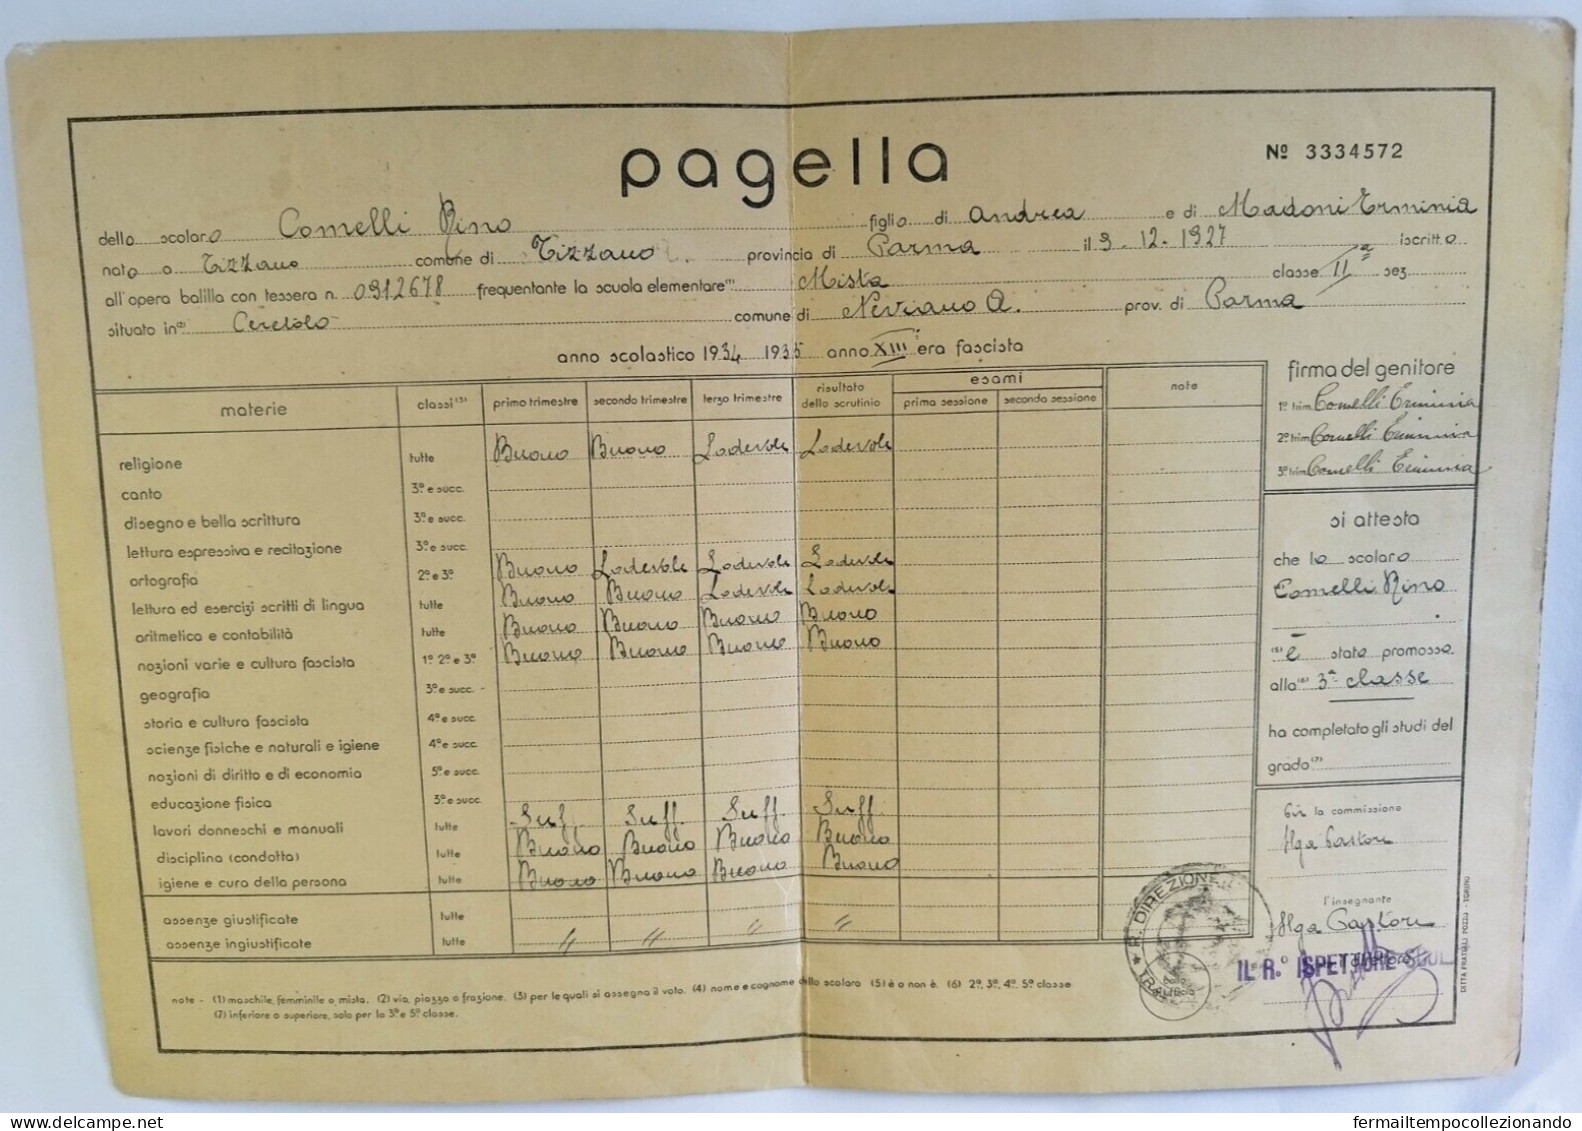 pagella
Nº 3334572
dello scolaro Comelli Rino figlio di Andrea e di Madoni Erminia
nato a Tizzano comune di Tizzano provincia di Parma il 9-12-1927 iscritto
all'opera balilla con tessera n. 0912678 frequentante la scuola elementare (1) Mista classe IIª sez.
situata in (2) Ceretolo comune di Neviano A. prov. di Parma
anno scolastico 1934 1935 anno XIII era fascista
materie classi (3) primo trimestre secondo trimestre terzo trimestre risultato dello scrutinio esami prima sessione seconda sessione note
religione tutte Buono Buono Lodevole Lodevole
canto 3ª e succ.
disegno e bella scrittura 3ª e succ.
lettura espressiva e recitazione 3ª e succ.
ortografia 2ª e 3ª Buono Lodevole Lodevole Lodevole
lettura ed esercizi scritti di lingua tutte Buono Buono Lodevole Lodevole
aritmetica e contabilità tutte Buono Buono Buono Buono
nozioni varie e cultura fascista 1ª 2ª e 3ª Buono Buono Buono Buono
geografia 3ª e succ.
storia e cultura fascista 4ª e succ.
scienze fisiche e naturali e igiene 4ª e succ.
nozioni di diritto e di economia 5ª e succ.
educazione fisica 3ª e succ.
lavori donneschi e manuali tutte Suff. Suff. Suff. Suff.
disciplina (condotta) tutte Buono Buono Buono Buono
igiene e cura della persona tutte Buono Buono Buono Buono
assenze giustificate tutte
assenze ingiustificate tutte // // // //
note - (1) maschile, femminile o mista. (2) via, piazza o frazione. (3) per le quali si assegna il voto. (4) nome e cognome dello scolaro (5) è o non è. (6) 2ª, 3ª, 4ª, 5ª classe
(7) inferiore o superiore, solo per la 3ª e 5ª classe.
firma del genitore
1º trim. Comelli Erminia
2º trim. Comelli Erminia
3º trim. Comelli Erminia
si attesta
che lo scolaro
Comelli Rino
(5) è stato promosso
alla (6) 3ª classe
ha completato gli studi del
grado (7)
la commissione
Ilga Pastori
l'insegnante
Ilga Pastori
IL R.º ISPETTORE
R. DIREZIONE
DITTA FRATELLI POZZO - TORINO
fermailtempocollezionando